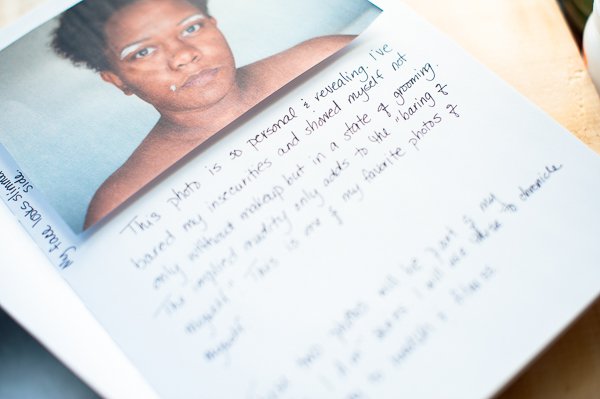 My face looks slimmer
side
This photo is so personal & revealing. I've
bared my insecurities and showed myself not
only without makeup but in a state of grooming.
The implied nudity only adds to the "baring of
myself". This is one of my favorite photos of
myself.
photos will be part of my
I will use to chronicle